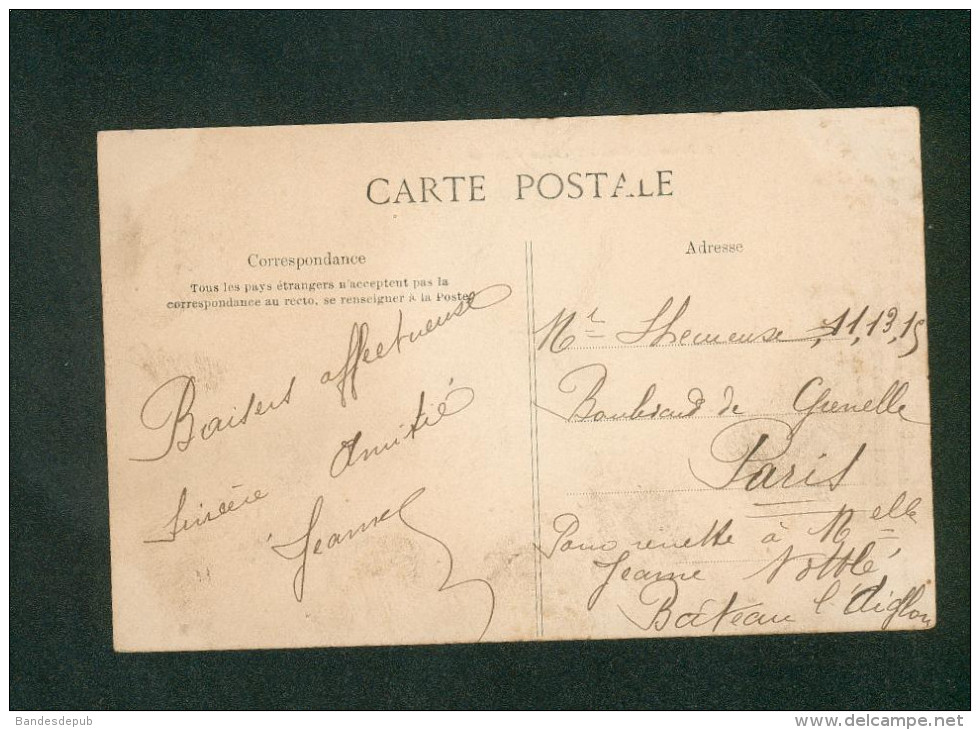 CARTE POSTALE
Correspondance
Tous les pays étrangers n'acceptent pas la
correspondance au recto, se renseigner à la Poste
Baisers affectueuse
Sincère Amitié
Jeanne
Adresse
Mr 11, 13, 15
Boulevard de Grenelle
Paris
Pour remettre à Melle
Jeanne
Bateau l'Aiglon
Bandesdepub
www.delcampe.net